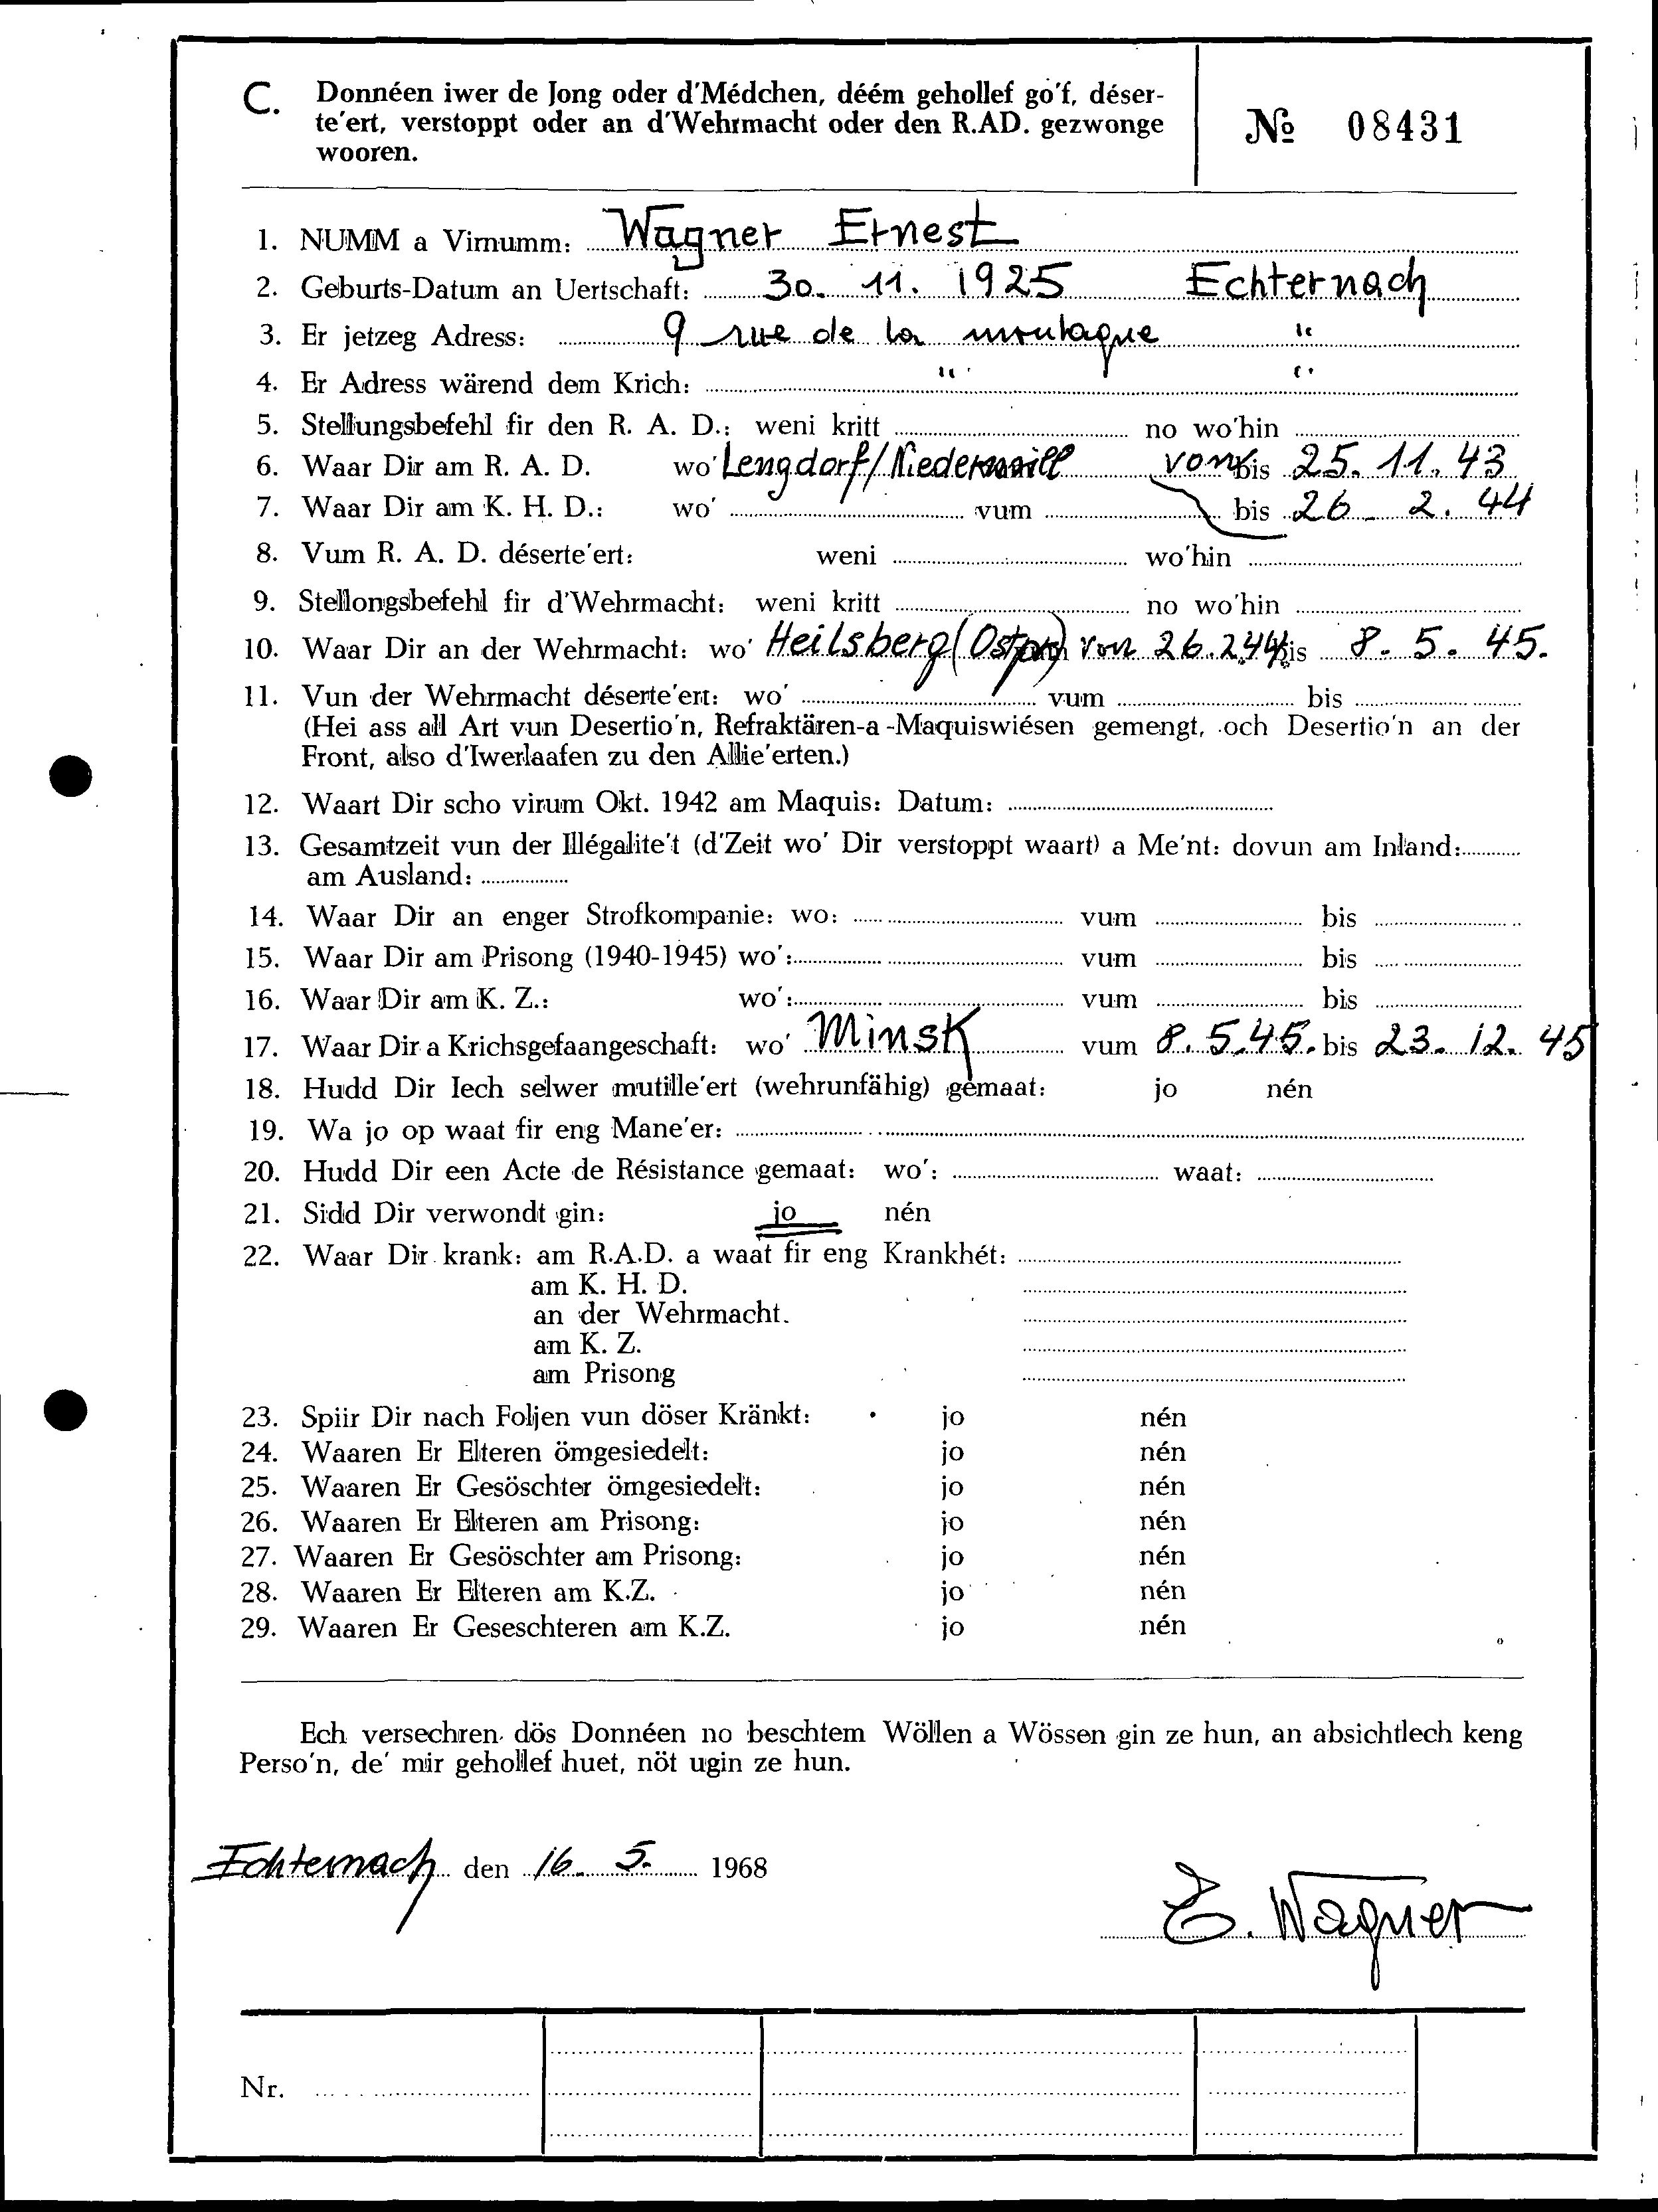 C. Donnéen iwer de Jong oder d'Médchen, déém gehollef go'f, déser-
te'ert, verstoppt oder an d'Wehrmacht oder den R.AD. gezwonge
wooren.
№ 08431
1. NUMM a Virnumm: Wagner Ernest
2. Geburts-Datum an Uertschaft: 30. 11. 1925 Echternach
3. Er jetzeg Adress: 9 rue de la montagne "
4. Er Adress wärend dem Krich: " "
5. Stellungsbefehl fir den R. A. D.: weni kritt no wo'hin
6. Waar Dir am R. A. D. wo' Lengdorf / vom bis 25. 11. 43
7. Waar Dir am K. H. D.: wo' vum bis 26. 2. 44
8. Vum R. A. D. déserte'ert: weni wo'hin
9. Stellongsbefehl fir d'Wehrmacht: weni kritt no wo'hin
10. Waar Dir an der Wehrmacht: wo' Heilsberg (Ostpr) von 26.2.44 bis 8. 5. 45.
11. Vun der Wehrmacht déserte'ert: wo' vum bis
(Hei ass all Art vun Desertio'n, Refraktären-a-Maquiswiésen gemengt, och Desertio'n an der
Front, also d'Iwerlaafen zu den Allie'erten.)
12. Waart Dir scho virum Okt. 1942 am Maquis: Datum:
13. Gesamtzeit vun der Illégalite't (d'Zeit wo' Dir verstoppt waart) a Me'nt: dovun am Inland:
am Ausland:
14. Waar Dir an enger Strofkompanie: wo: vum bis
15. Waar Dir am Prisong (1940-1945) wo': vum bis
16. Waar Dir am K. Z.: wo': vum bis
17. Waar Dir a Krichsgefaangeschaft: wo' Minsk vum 8. 5. 45. bis 23. 12. 45
18. Hudd Dir Iech selwer mutille'ert (wehrunfähig) gemaat: jo nén
19. Wa jo op waat fir eng Mane'er:
20. Hudd Dir een Acte de Résistance gemaat: wo': waat:
21. Sidd Dir verwondt gin: jo nén
22. Waar Dir krank: am R.A.D. a waat fir eng Krankhét:
am K. H. D.
an der Wehrmacht.
am K. Z.
am Prisong
23. Spiir Dir nach Foljen vun döser Kränkt: jo nén
24. Waaren Er Elteren ömgesiedelt: jo nén
25. Waaren Er Gesöschter ömgesiedelt: jo nén
26. Waaren Er Elteren am Prisong: jo nén
27. Waaren Er Gesöschter am Prisong: jo nén
28. Waaren Er Elteren am K.Z. jo nén
29. Waaren Er Geseschteren am K.Z. jo nén
Ech versechren dös Donnéen no beschtem Wöllen a Wössen gin ze hun, an absichtlech keng
Perso'n, de' mir gehollef huet, nöt ugin ze hun.
Echternach den 16. 5. 1968
E. Wagner
Nr.